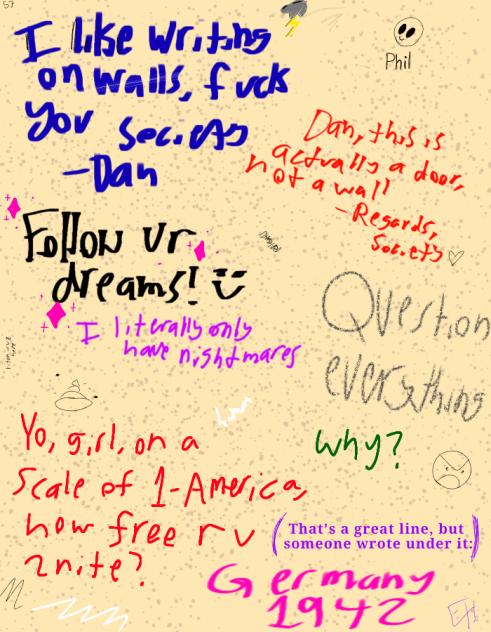 57
I like writing
on walls, fuck
you society
-Dan
Phil
Dan, this is
actually a door,
not a wall
-Regards,
Society
Follow ur
dreams!
I literally only
have nightmares
Question
everything
why?
Yo, girl, on a
scale of 1-America,
how free r u
2nite?
(That's a great line, but
someone wrote under it:)
Germany
1942